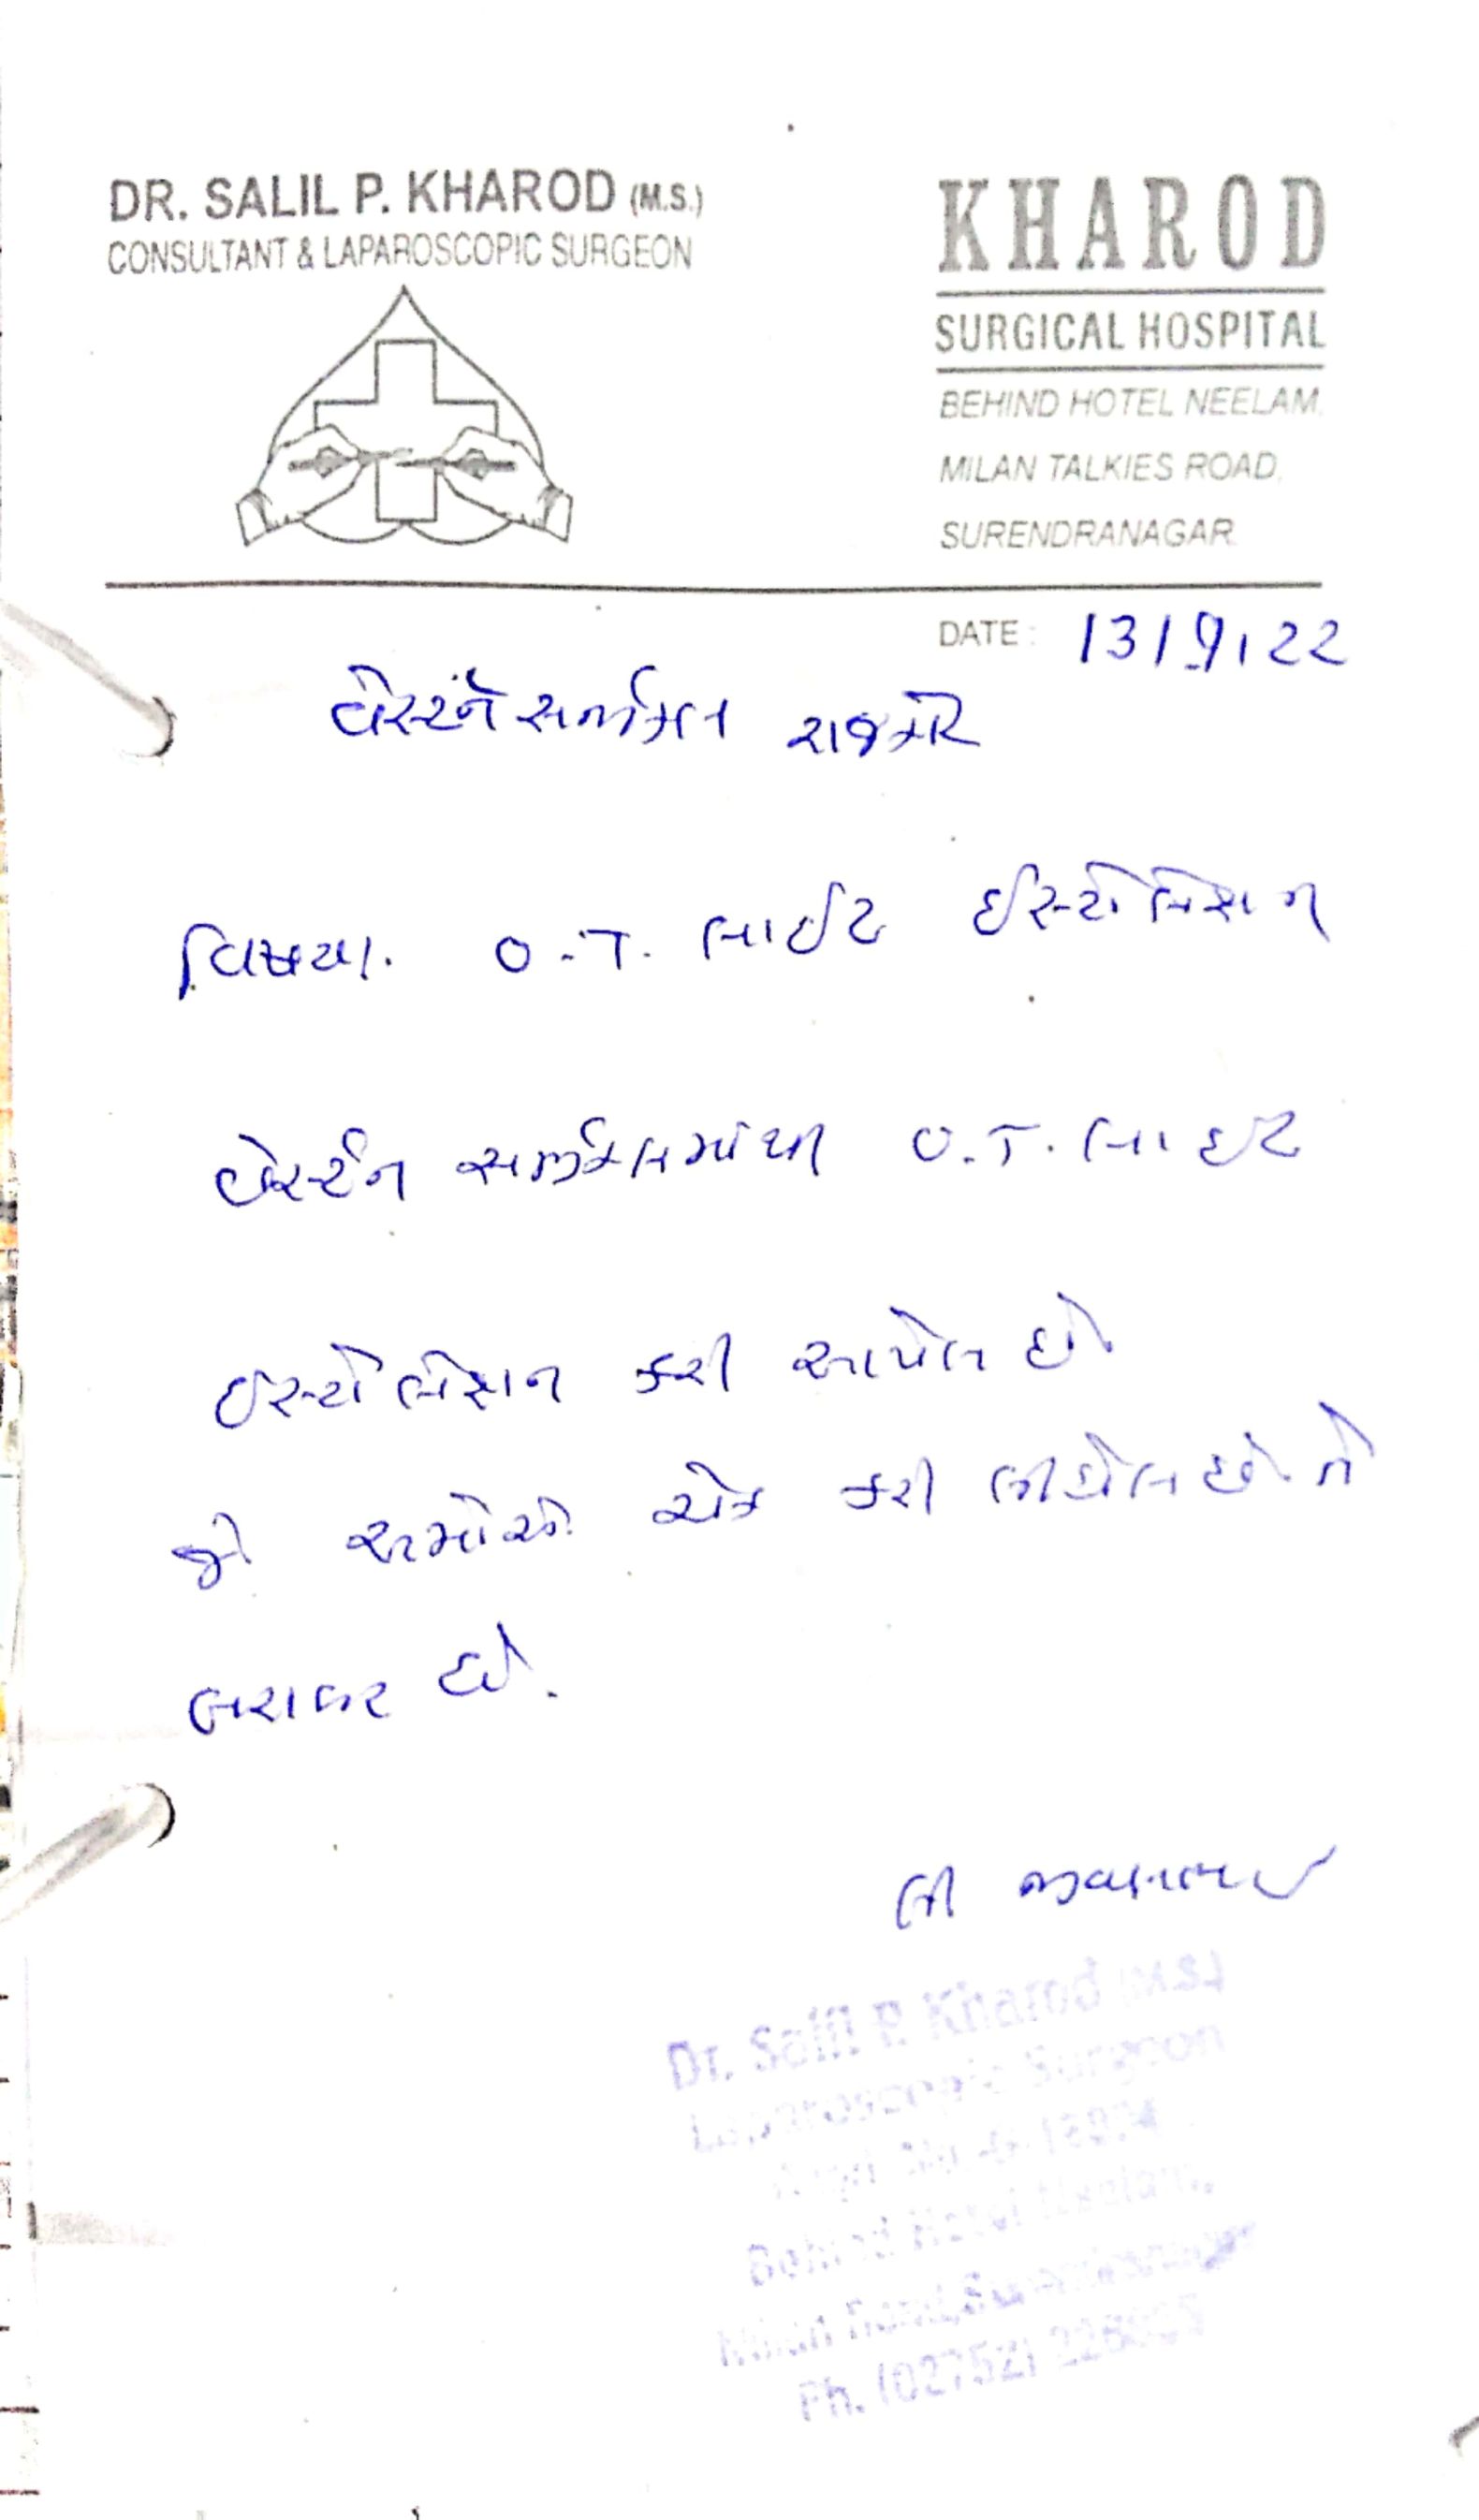 DR. SALIL P. KHAROD (M.S.)
CONSULTANT & LAPAROSCOPIC SURGEON
KHAROD
SURGICAL HOSPITAL
BEHIND HOTEL NEELAM,
MILAN TALKIES ROAD,
SURENDRANAGAR
DATE: 13/9/22
વેસ્ટર્ન સર્જીકલ રાજકોટ
વિષય. O.T. લાઈટ ઈસ્ટોલેસન
વેસ્ટર્ન સર્જીકલમાંથી O.T. લાઈટ
ઈસ્ટોલેસન કરી આપેલ છે
જે અમોએ ચેક કરી લીધેલ છે તે
બરાબર છે.
લી
Dr. Salil P. Kharod (M.S.)
Laparoscopic Surgeon
Behind Hotel Neelam,
Ph. (02752)